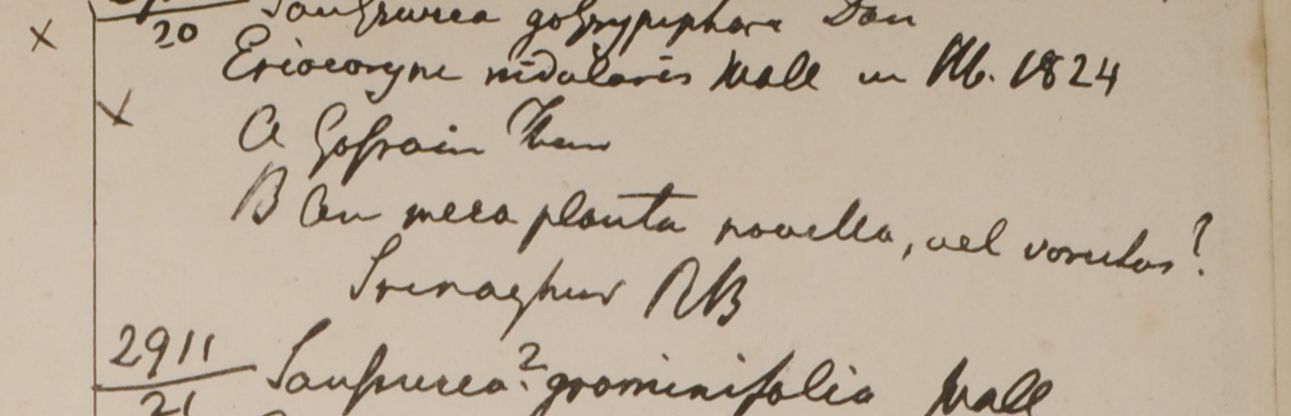 20 Saussurea gossypiphora Don
Eriocoryne nidularis Wall in Hb. 1824
A Gossain Than
B an mera planta novella, vel varietas?
Srinaghur RB
2911
21 Saussurea? graminifolia Wall